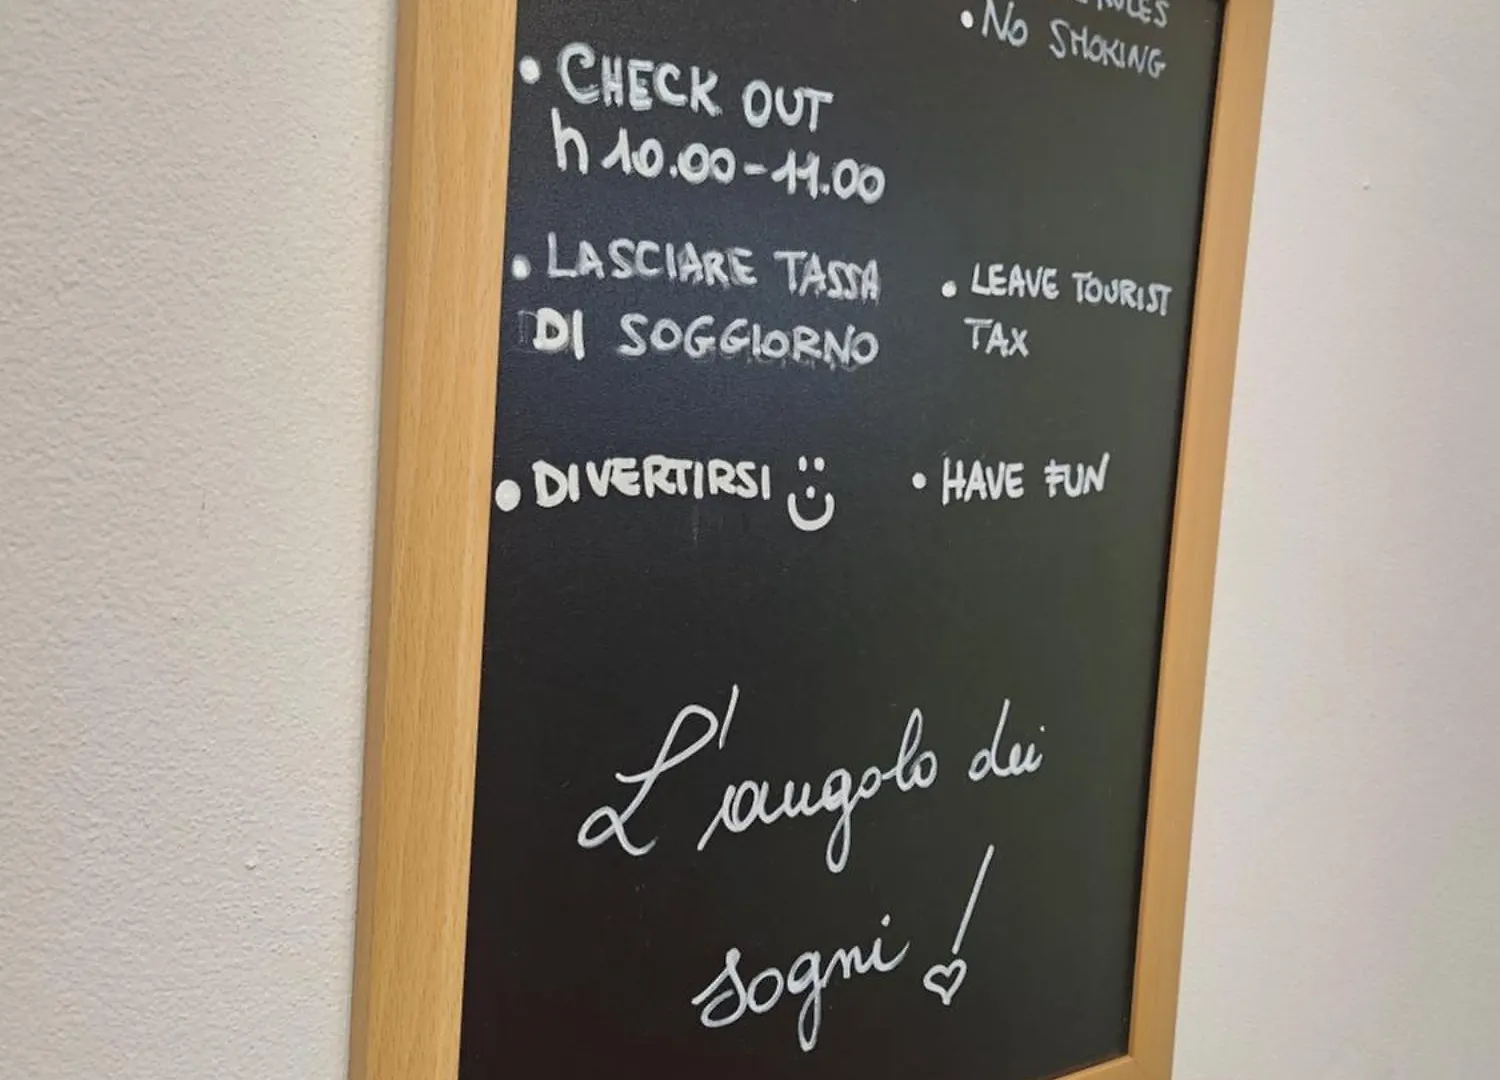 RULES
• NO SMOKING
• CHECK OUT
h 10.00-11.00
• LASCIARE TASSA
DI SOGGIORNO
• LEAVE TOURIST
TAX
• DIVERTIRSI
• HAVE FUN
L'angolo dei
sogni!